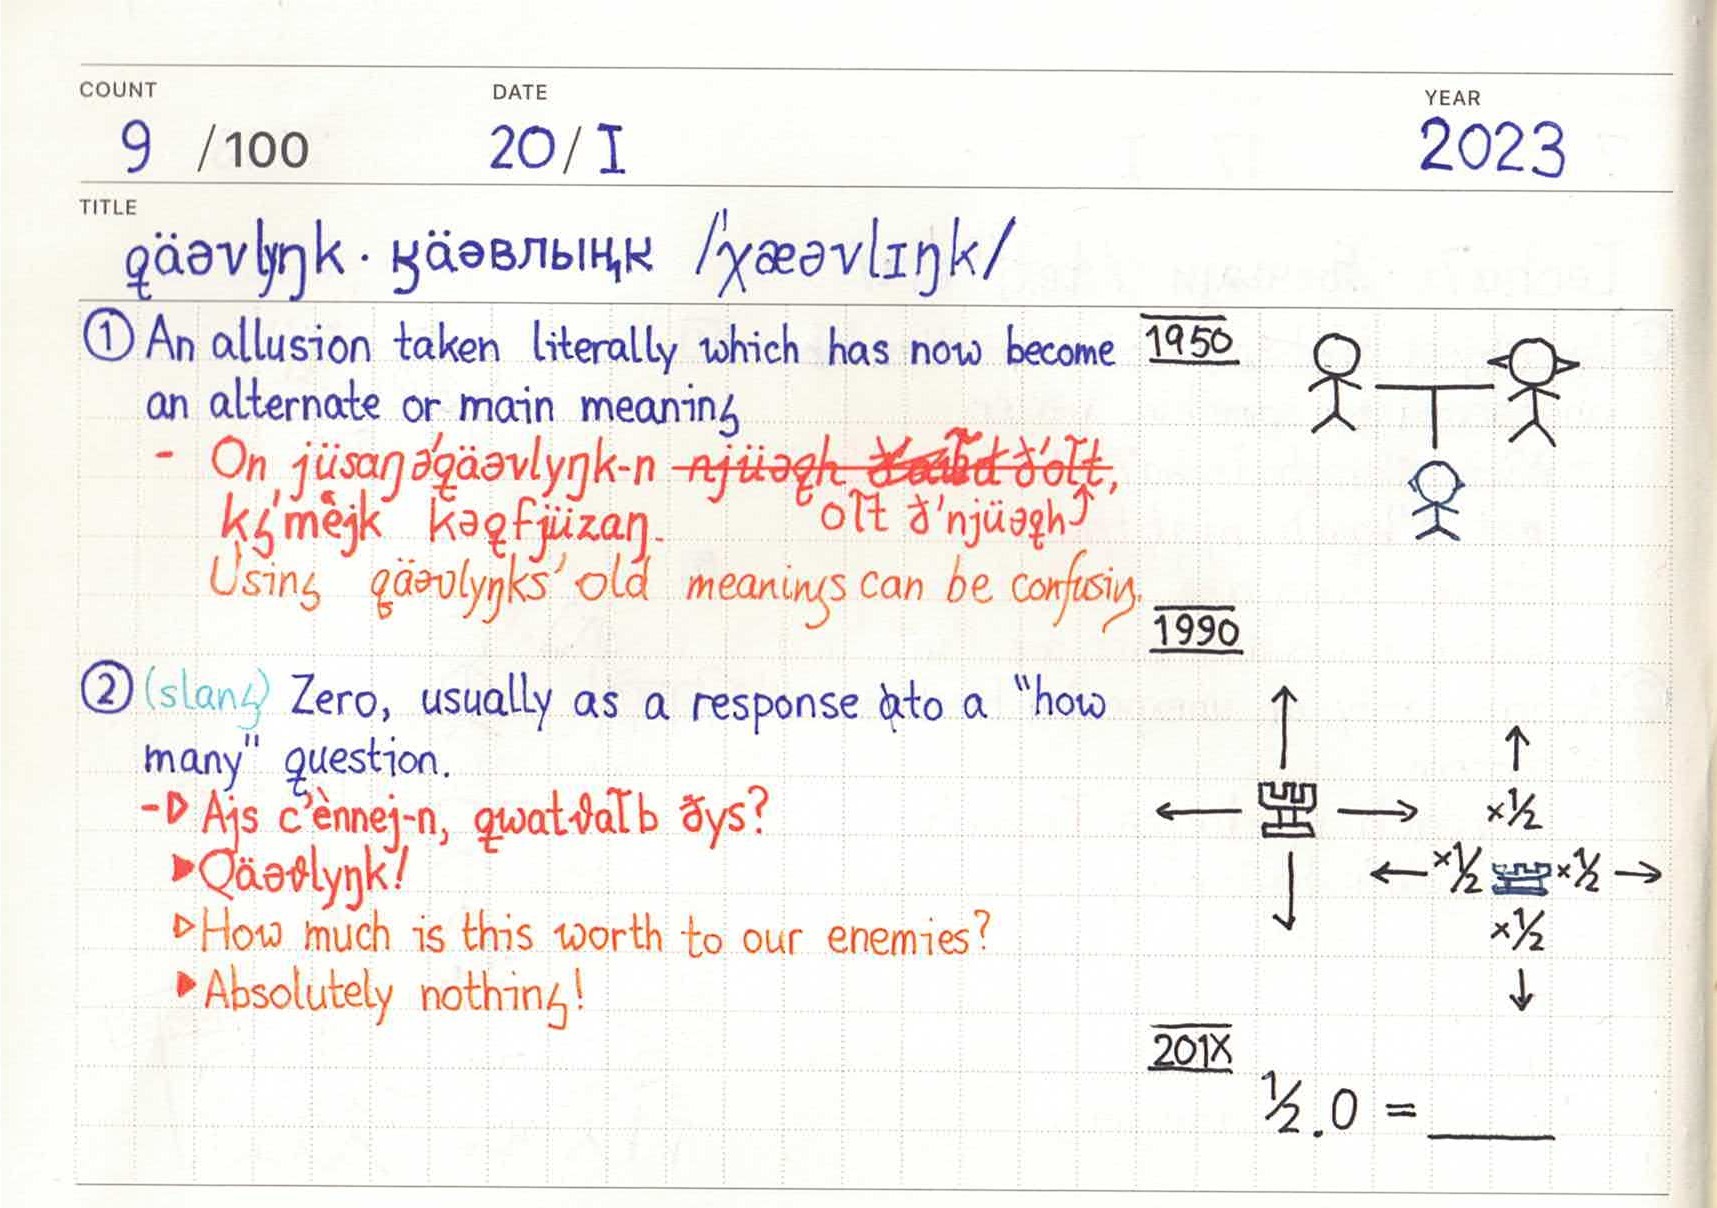 COUNT DATE YEAR
9 /100 20/I 2023
TITLE
qäəvlyŋk · ӄäəвлыңк /ˈχæəvlɪŋk/
① An allusion taken literally which has now become
an alternate or main meaning
- On jüsaŋ ə'qäəvlyŋk-n njüəqh ð'oľt,
kʒ'mèjk kəqfjüzaŋ. oľt ð'njüəqh↑
Using qäəvlyŋks' old meanings can be confusing.
② (slang) Zero, usually as a response to a "how
many" question.
-▷ Ajs c'ènnej-n, qwatϑaľb ðys?
▶ Qäəϑlyŋk!
▷ How much is this worth to our enemies?
▶ Absolutely nothing!
1950
1990
×½
×½ ×½
×½
201X
½.0 = ____